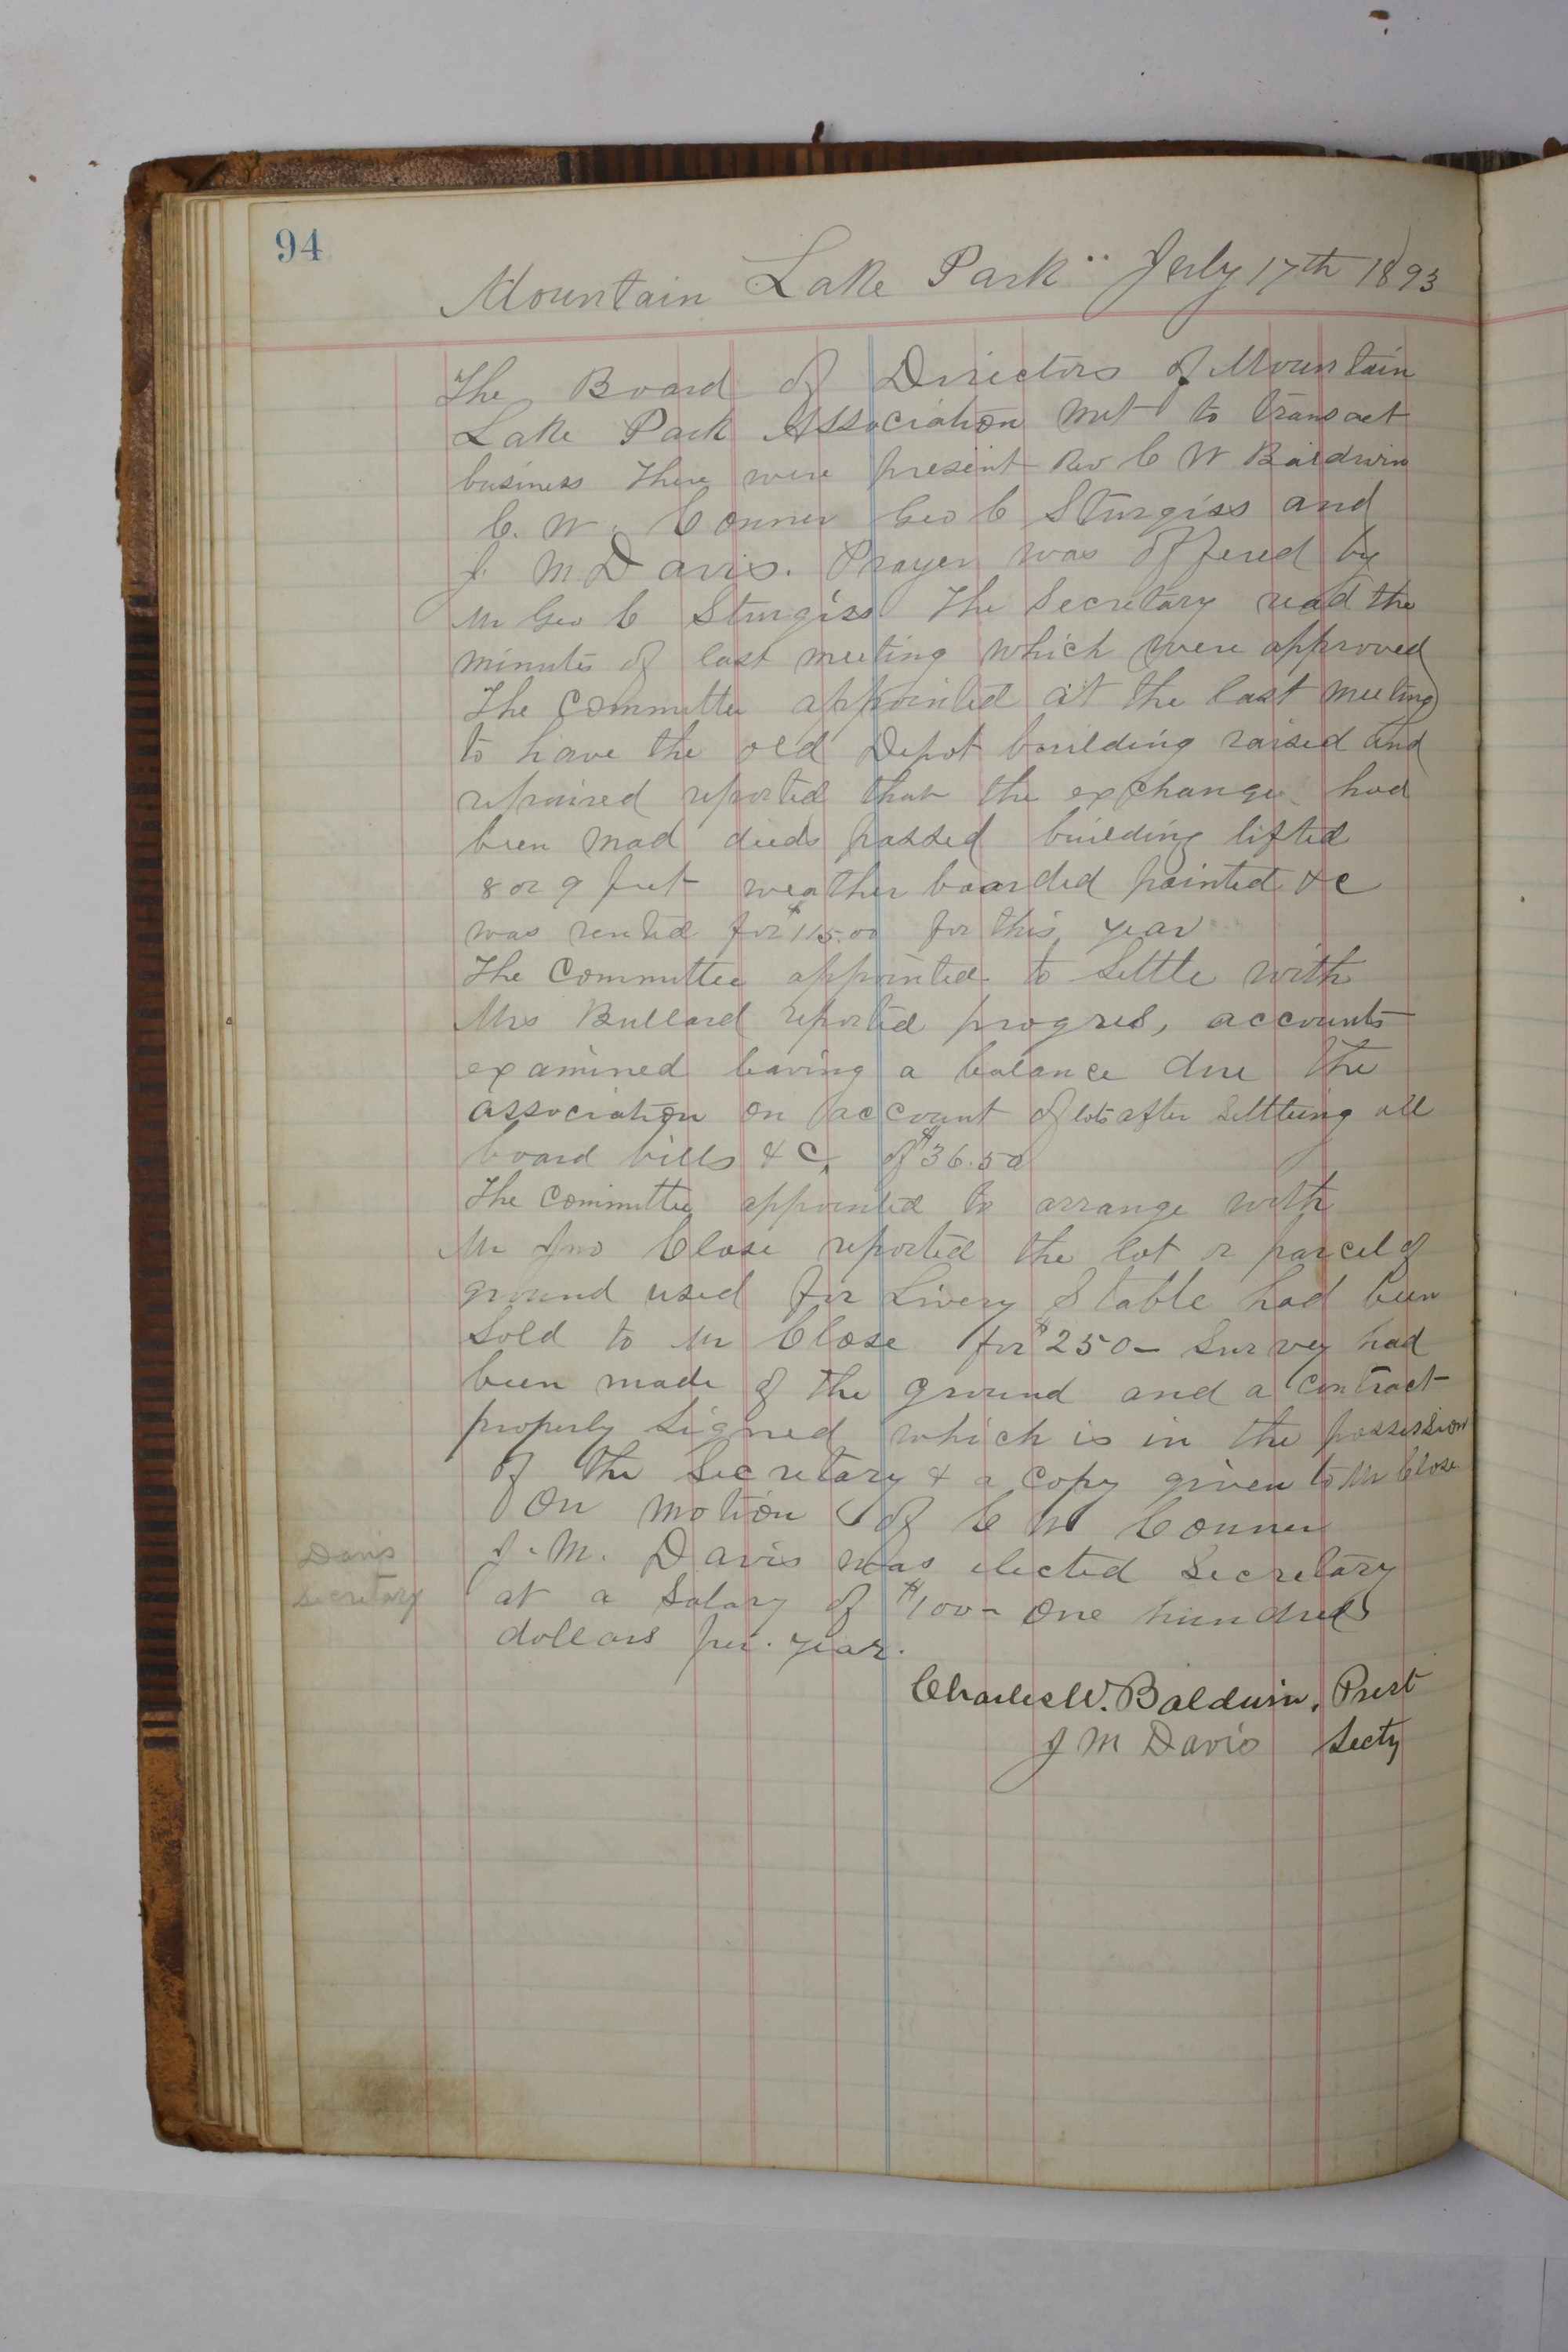 94
Mountain Lake Park" July 17th 1893
The Board of Directors of Mountain
Lake Park Association met to transact
business There were present Rev C W Baldwin
C. W. Conner Geo C Sturgiss and
J. M Davis. Prayer was offered by
Mr Geo C Sturgiss. The Secretary read the
minutes of last meeting which were approved
The Committee appointed at the last meeting
to have the old Depot building raised and
repaired reported that the exchange had
been mad deeds passed building lifted
8 or 9 feet weather boarded painted &c
was rented for $115.00 for this year
The Committee appointed to settle with
Mrs Bullard reported progres, accounts
examined leaving a balance due the
association on account of lots after settleing all
board bills & C, of $36.50
The Committee appointed to arrange with
Mr Jno Close reported the lot or parcel of
ground used for Livery Stable had been
sold to Mr Close for $250- Survey had
been made of the ground and a contract
properly signed which is in the possession
of the Secretary & a copy given to Mr Close
On motion of C W Conner
J. M. Davis was elected Secretary
Davis
Secretary
at a salary of $100- One hundred
dollars per. year.
Charles W. Baldwin, Prest
J M Davis Secty